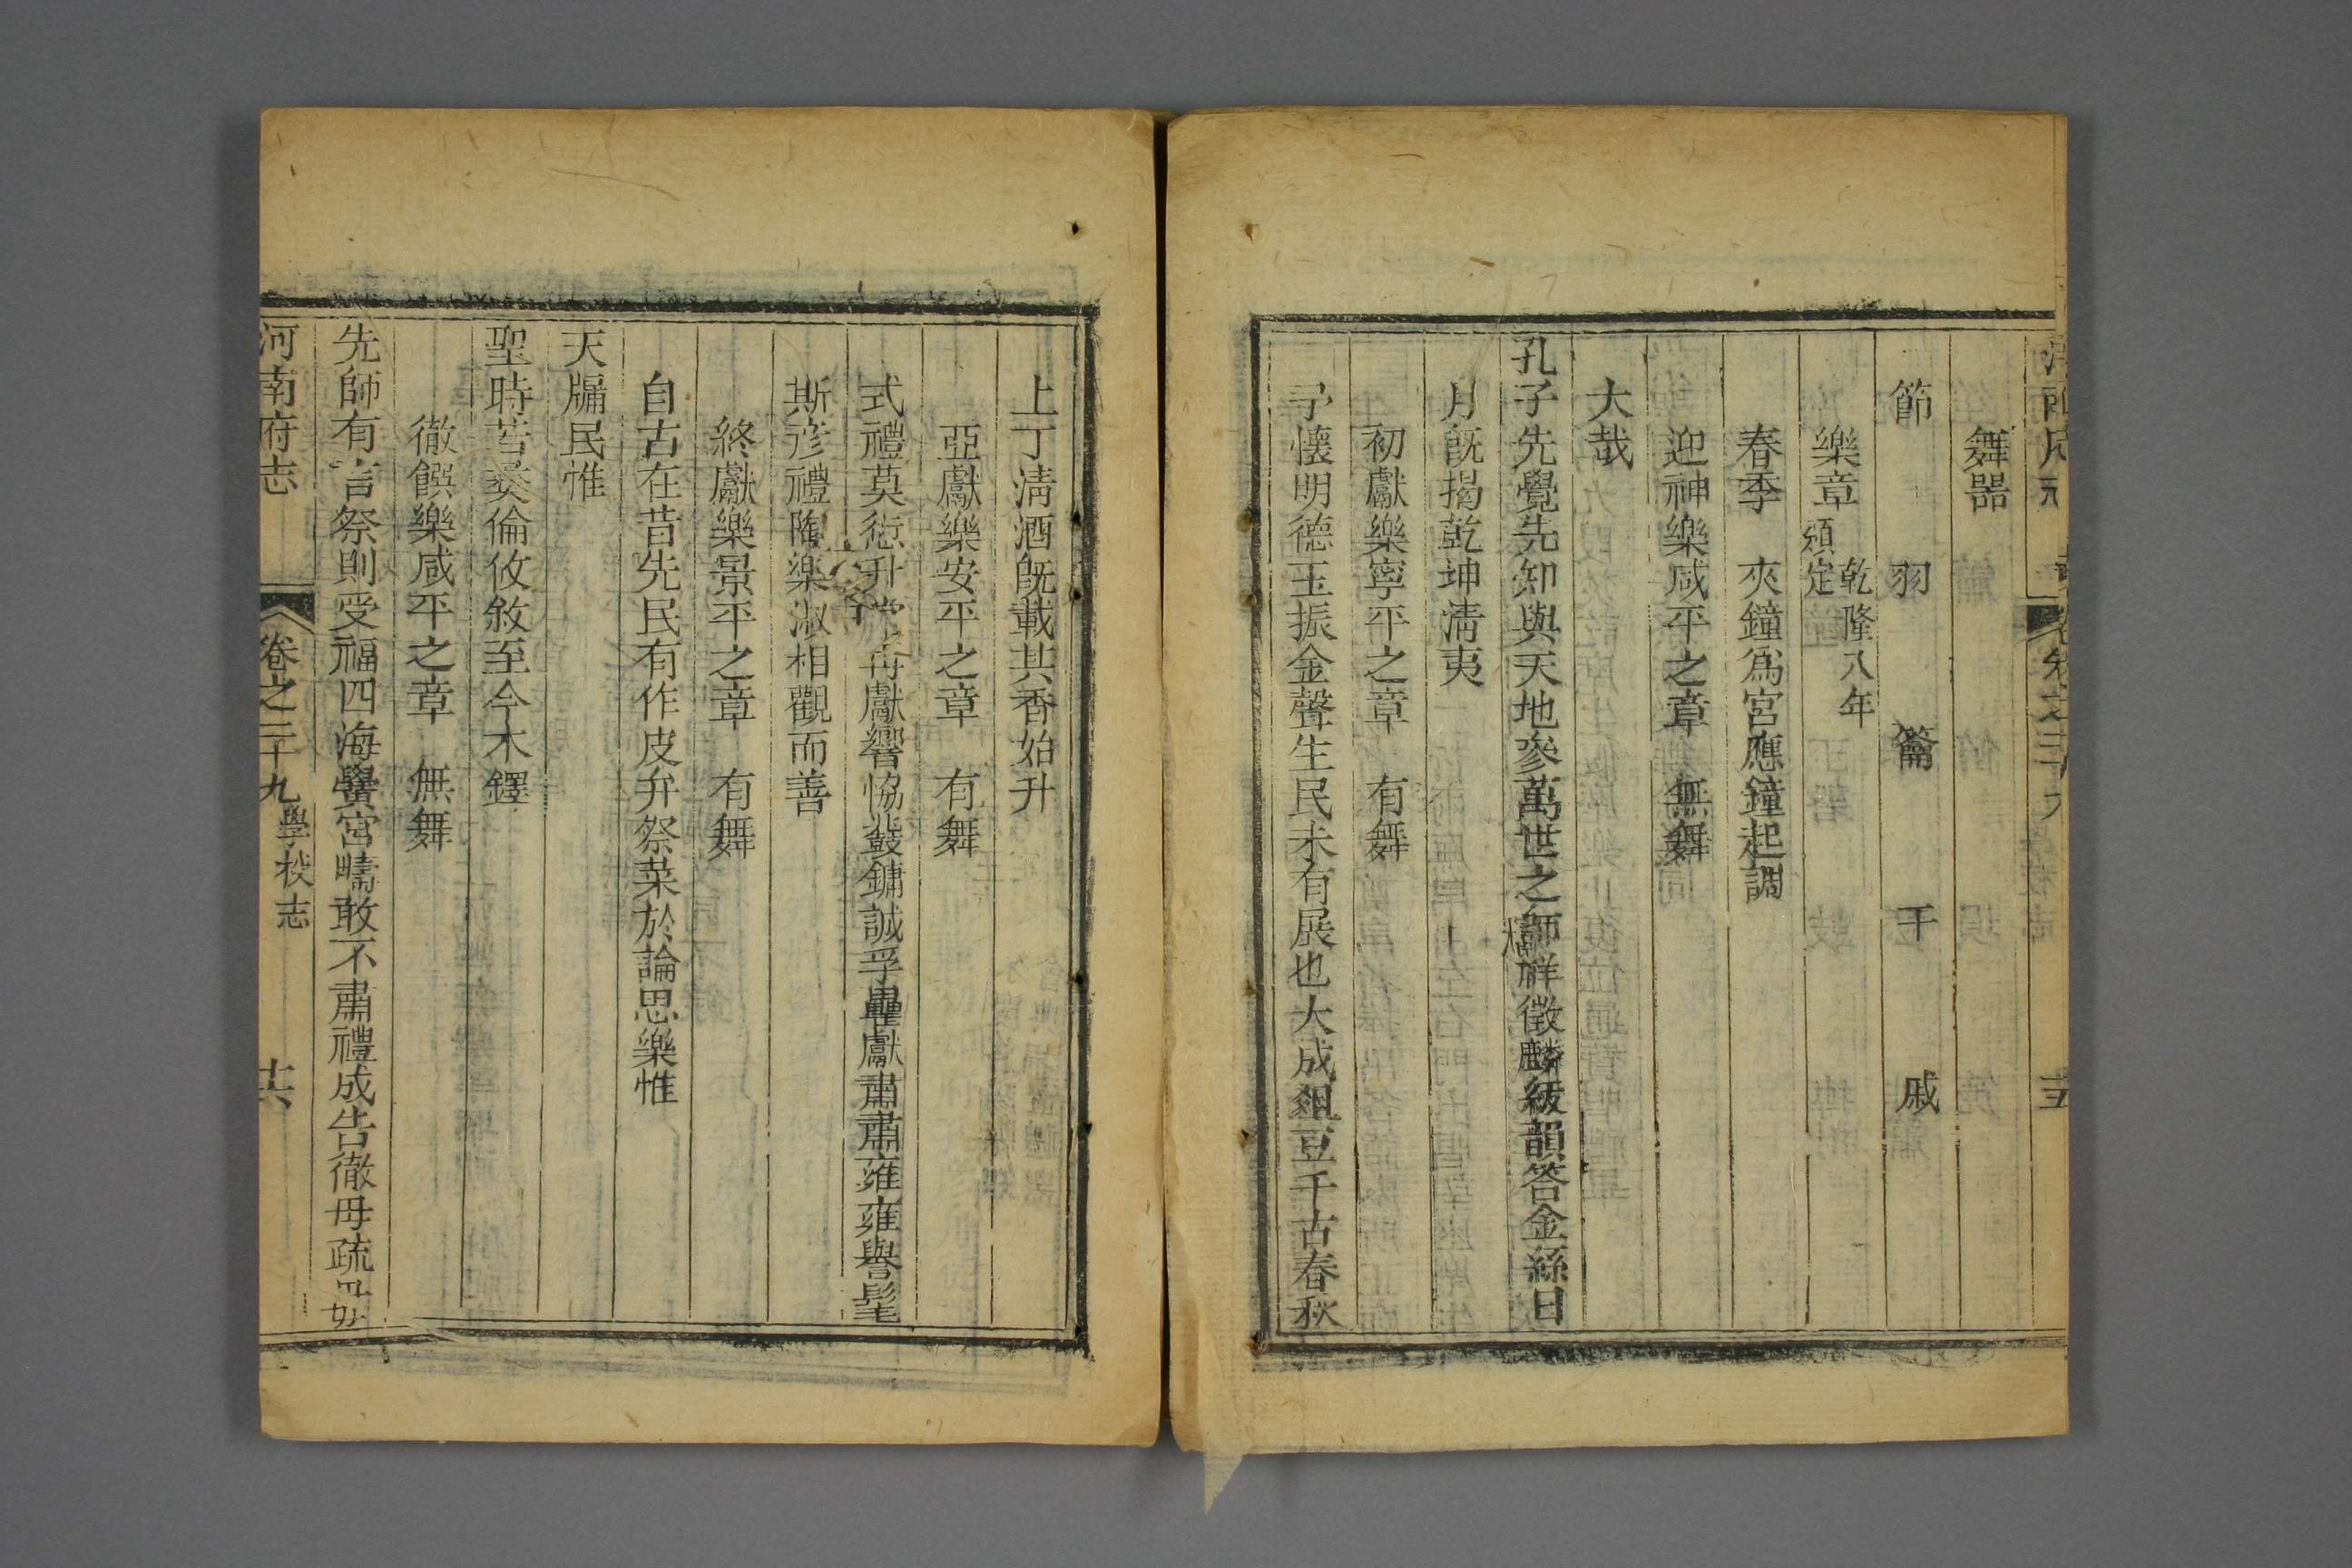 舞器
節 羽 籥 干 戚
樂章 乾隆八年頒定
春季 夾鐘爲宮應鐘起調
迎神樂咸平之章 無舞
大哉
孔子先覺先知與天地參萬世之師祥徵麟紱韻答金絲日
月旣揭乾坤清夷
初獻樂寧平之章 有舞
予懷明德玉振金聲生民未有展也大成俎豆千古春秋
上丁清酒旣載其香始升
亞獻樂安平之章 有舞
式禮莫愆升堂再獻響恊鼖鏞誠孚罍甗肅肅雍雍譽髦
斯彦禮陶樂淑相觀而善
終獻樂景平之章 有舞
自古在昔先民有作皮弁祭菜於論思樂惟
天牖民惟
聖時若彝倫攸敘至今木鐸
徹饌樂咸平之章 無舞
先師有言祭則受福四海黌宮疇敢不肅禮成告徹毋疏毋
河南府志 卷之二十九 學校志 十六